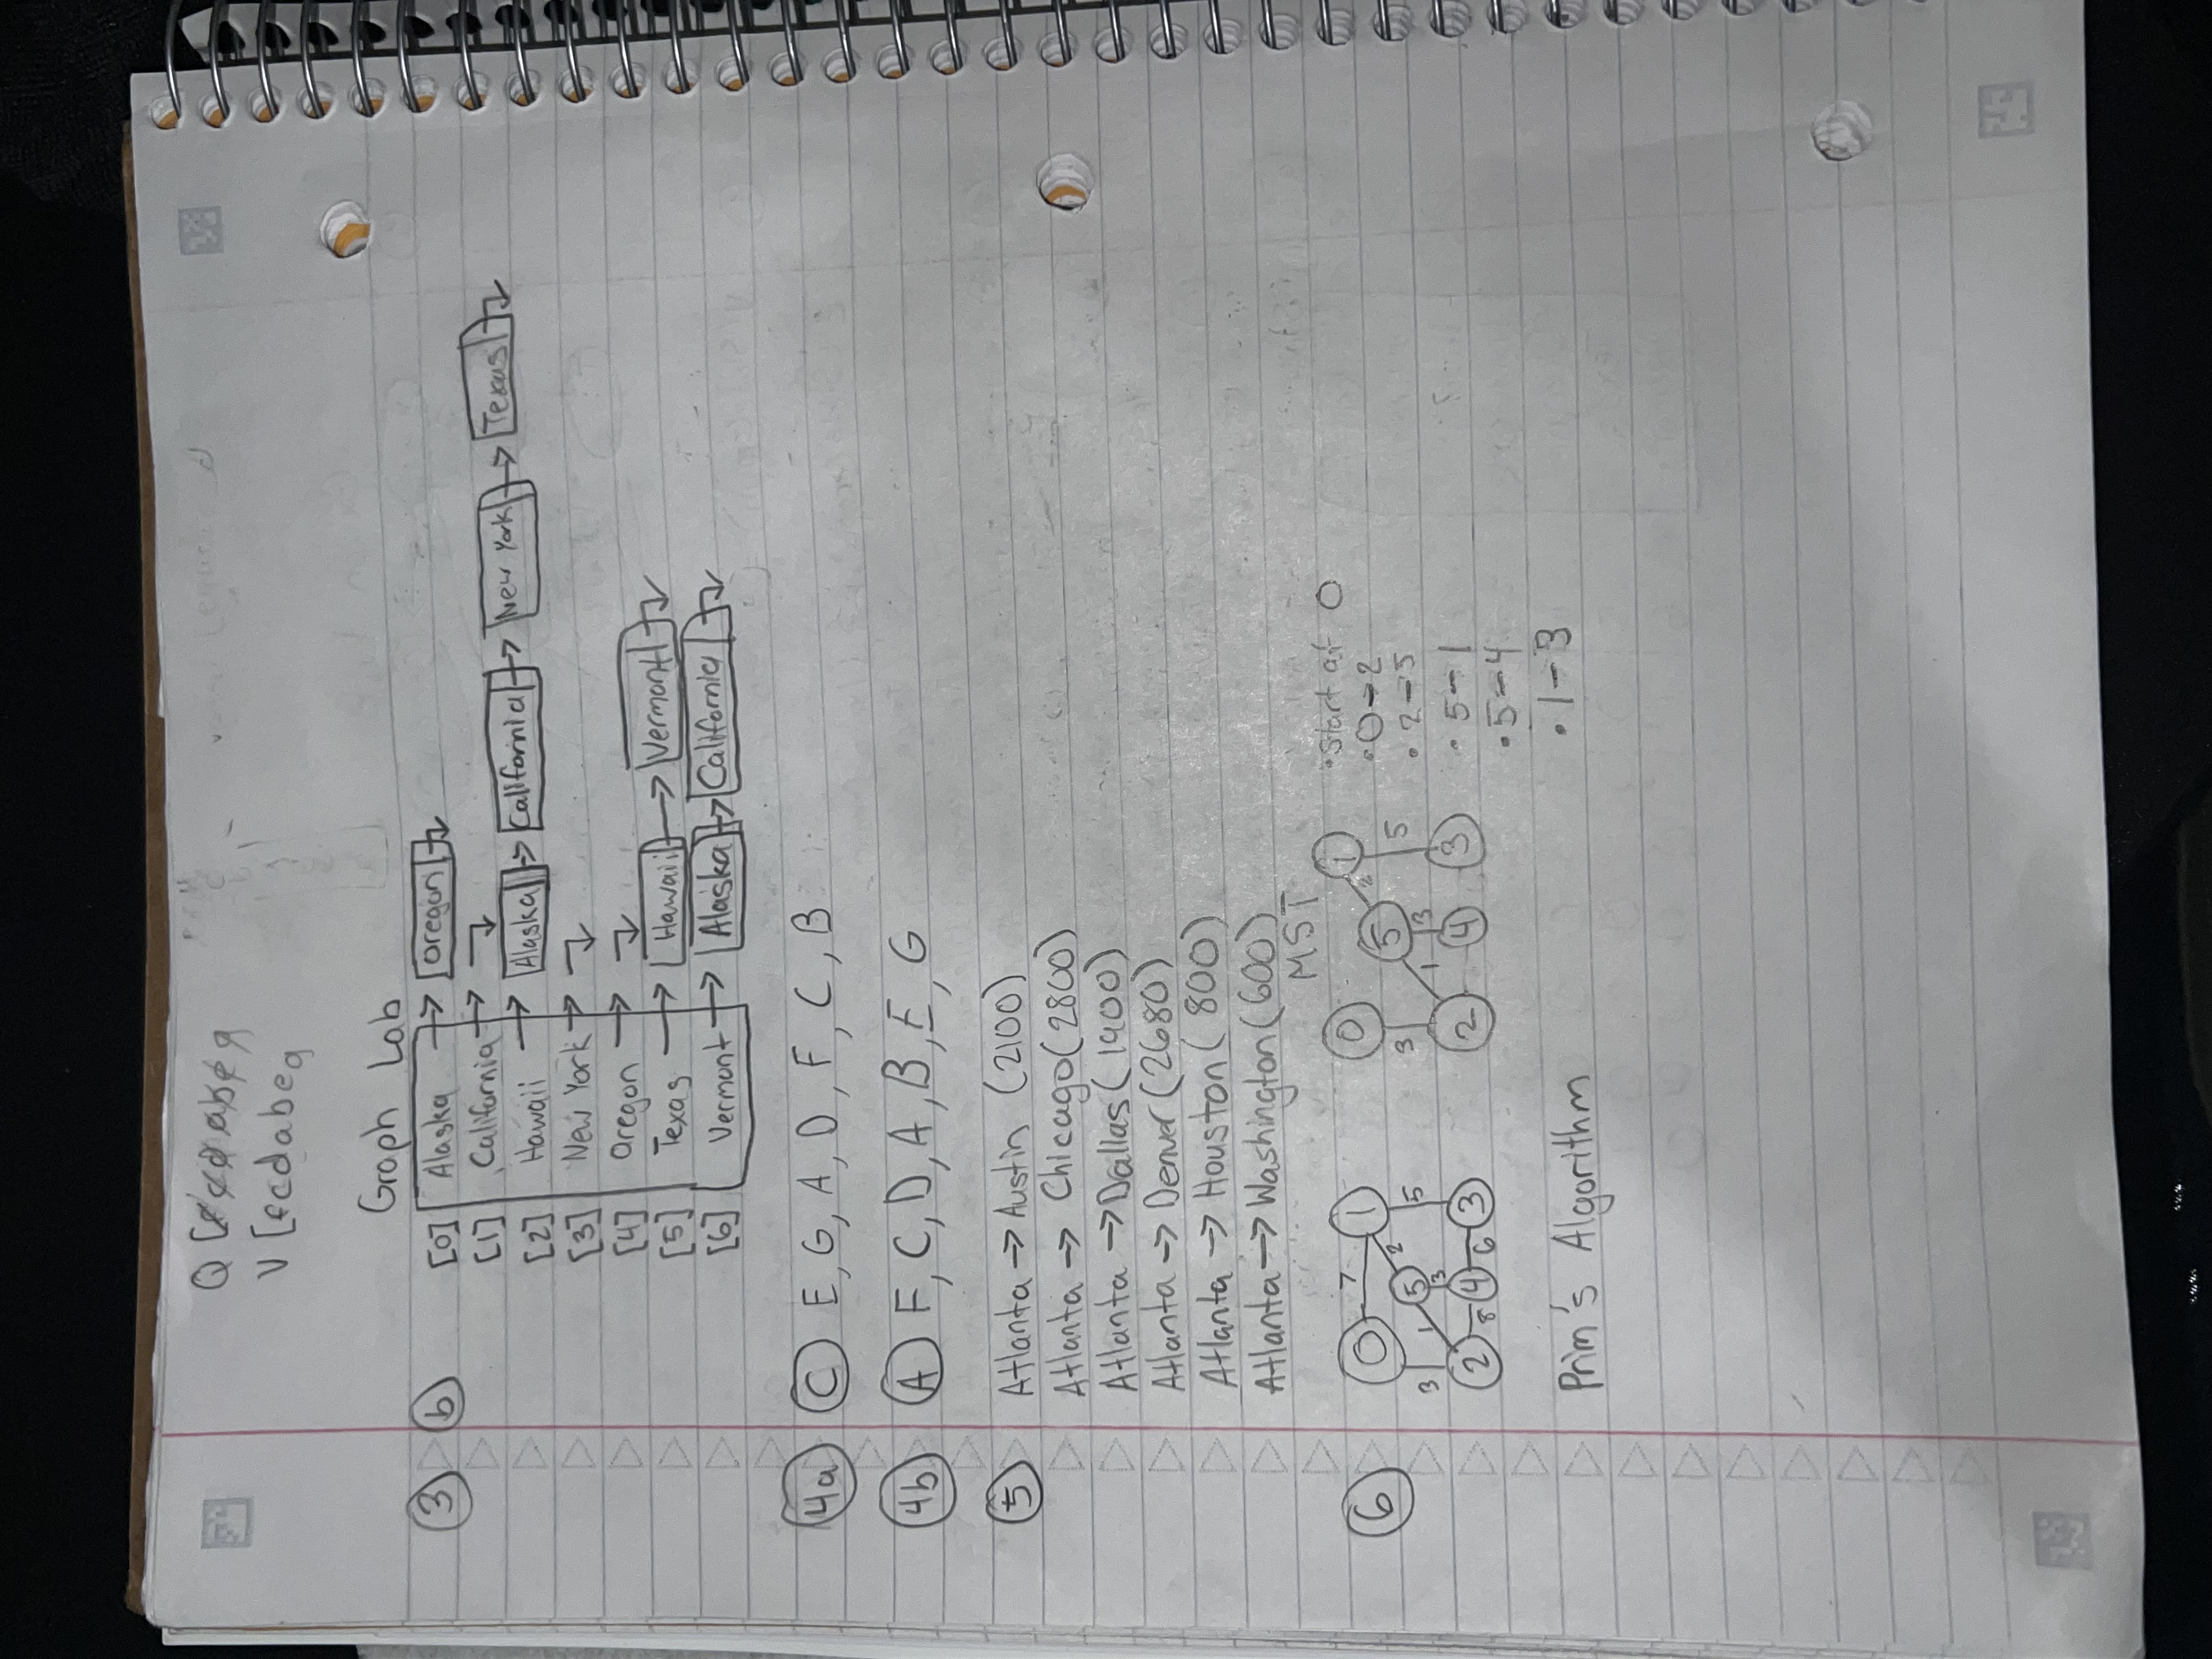 Q [f c d a b e g
V [f c d a b e g
Graph Lab
3 b [0] Alaska → Oregon
[1] California →
[2] Hawaii → Alaska → California → New York → Texas
[3] New York →
[4] Oregon →
[5] Texas → Hawaii → Vermont
[6] Vermont → Alaska → California
4a C E, G, A, D, F, C, B
4b A F, C, D, A, B, E, G
5 Atlanta → Austin (2100)
Atlanta → Chicago (2800)
Atlanta → Dallas (1900)
Atlanta → Denver (2680)
Atlanta → Houston (800)
Atlanta → Washington (600)
MST
6 0 7 1 0 1 • Start at 0
5 2 5 2 • 0 - 2
3 1 3 5 3 1 3 5 • 2 - 5
2 8 4 6 3 2 4 3 • 5 - 1
• 5 - 4
• 1 - 3
Prim's Algorithm